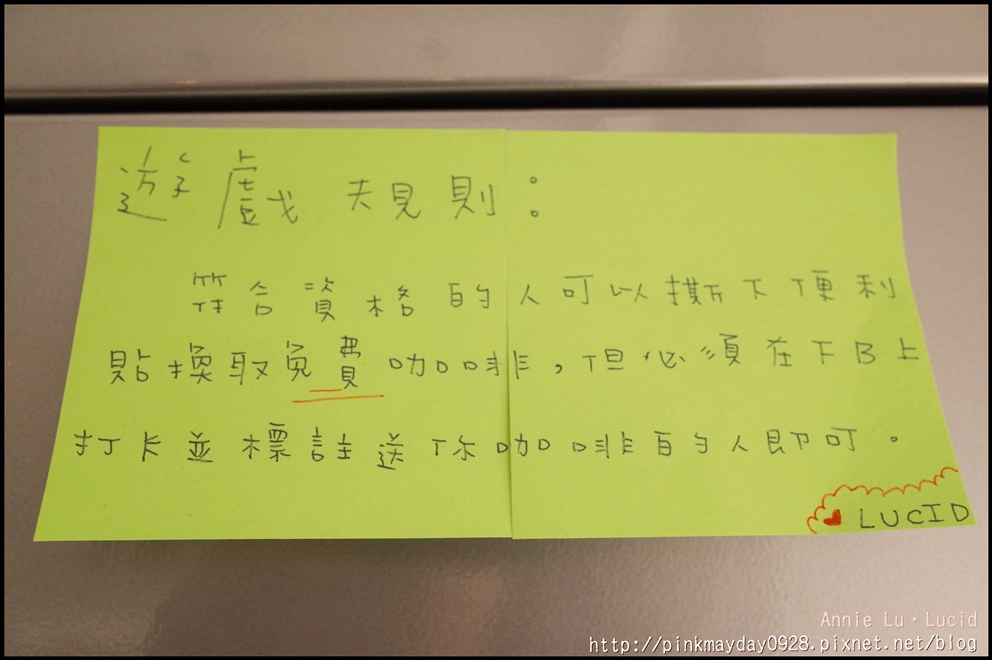 遊戲規則：
符合資格的人可以撕下便利
貼換取免費咖啡，但必須在下B上
打卡並標註送你咖啡的人即可。
LUCID
Annie Lu·Lucid
http://pinkmayday0928.pixnet.net/blog